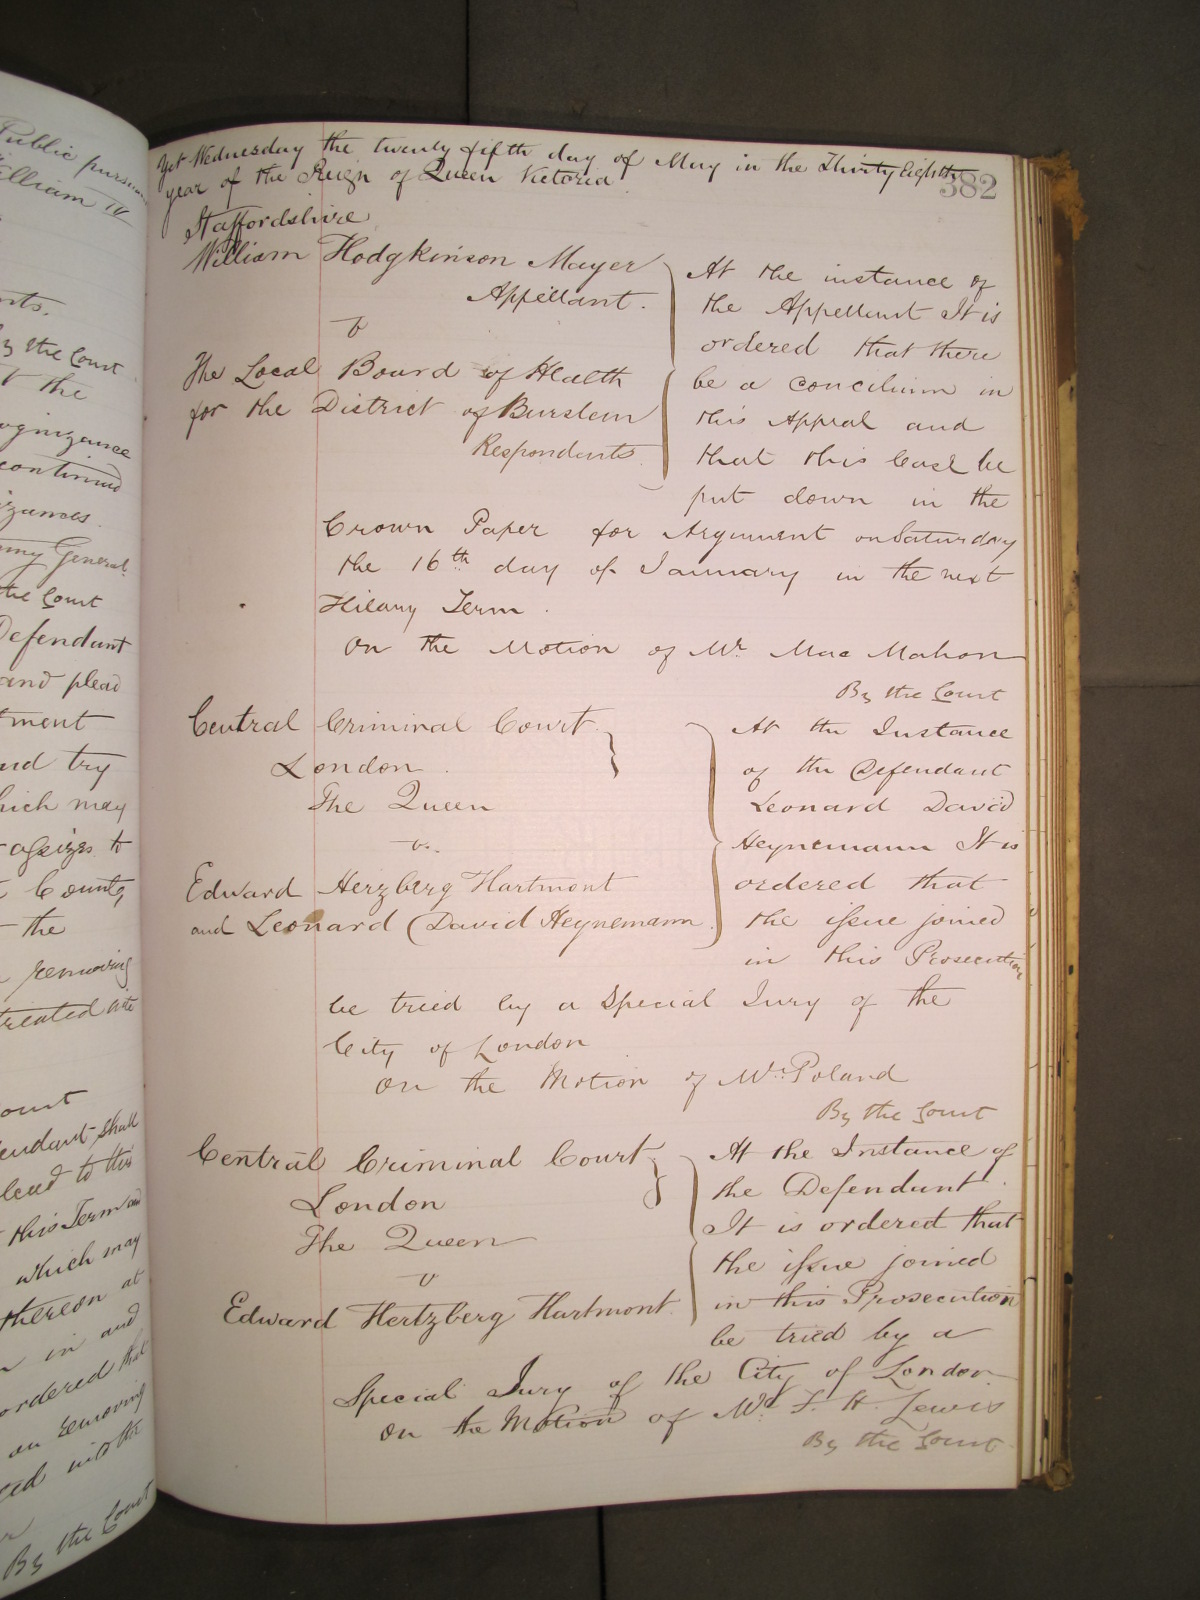 Public pursu
illiam IV
nts.
By the Court
the
ognizance
continued
izances.
General.
the Court
Defendant
and plead
tment
and try
which may
assizes to
County
the
removing
treated
Court
endant shall
lead to this
this Term and
which may
thereon at
in and
ordered that
on removing
with the
By the Court
382
Yet Wednesday the twenty fifth day of May in the Thirty Eighth
year of the Reign of Queen Victoria
Staffordshire
William Hodgkinson Mayer
Appellant.
v
The Local Board of Health
for the District of Burslem
Respondents
At the instance of
the Appellant It is
ordered that there
be a concilium in
this Appeal and
that this Case be
put down in the
Crown Paper for Argument on Saturday
the 16th day of January in the next
Hilary Term.
On the Motion of Mr. Mac Mahon
By the Court
Central Criminal Court
London.
The Queen
v.
Edward Herzberg Hartmont
and Leonard David Heynemann
At the Instance
of the Defendant
Leonard David
Heynemann It is
ordered that
the issue joined
in this Prosecution
be tried by a Special Jury of the
City of London
On the Motion of Mr. Poland
By the Court
Central Criminal Court
London
The Queen
v
Edward Hertzberg Hartmont
At the Instance of
the Defendant.
It is ordered that
the issue joined
in this Prosecution
be tried by a
Special Jury of the City of London.
On the Motion of Mr. F. H. Lewis
By the Court